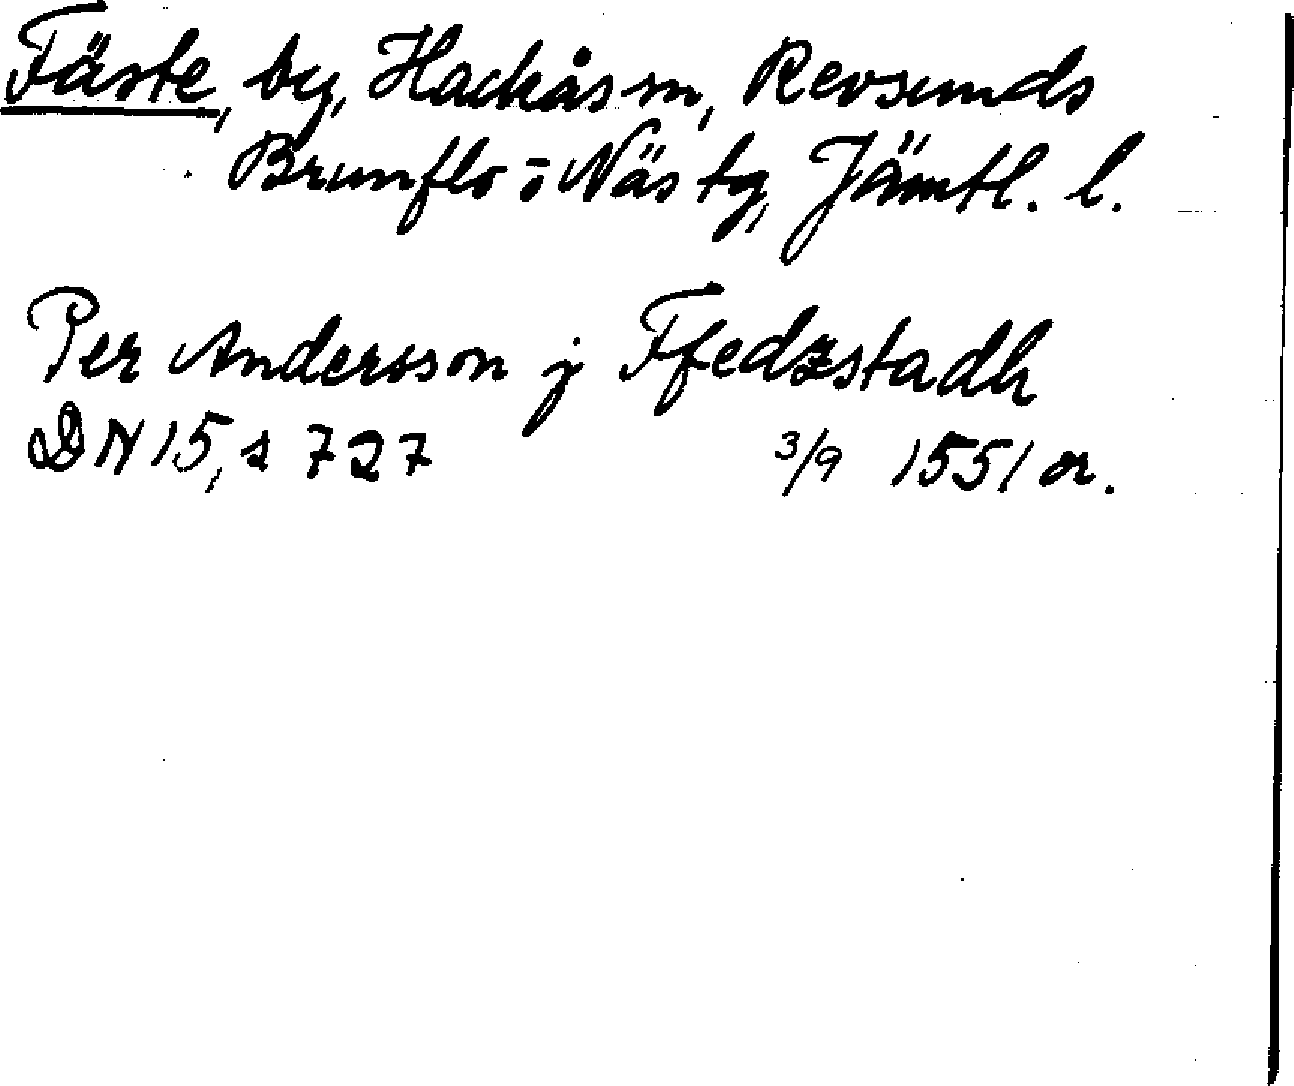 Fäste, by, Hackås sn, Revsunds
Brunflo o Näs tg, Jämtl. l.
Per Andersson j Ffedzstadh
DN 15, s 727 3/9 1551 or.